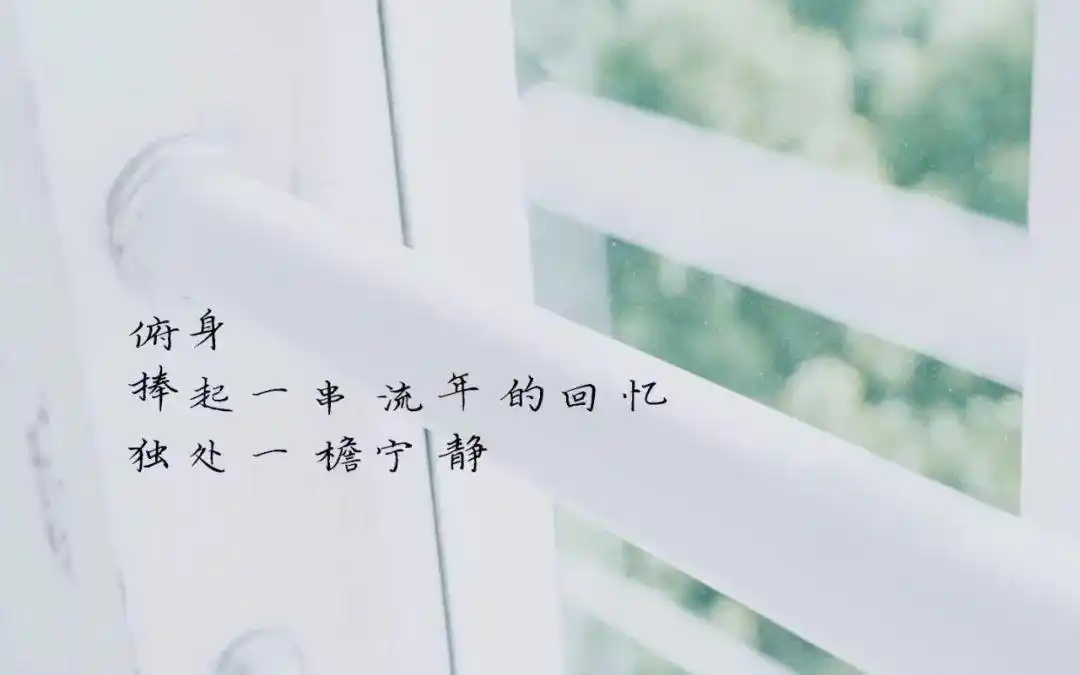 俯身
捧起一串流年的回忆
独处一檐宁静